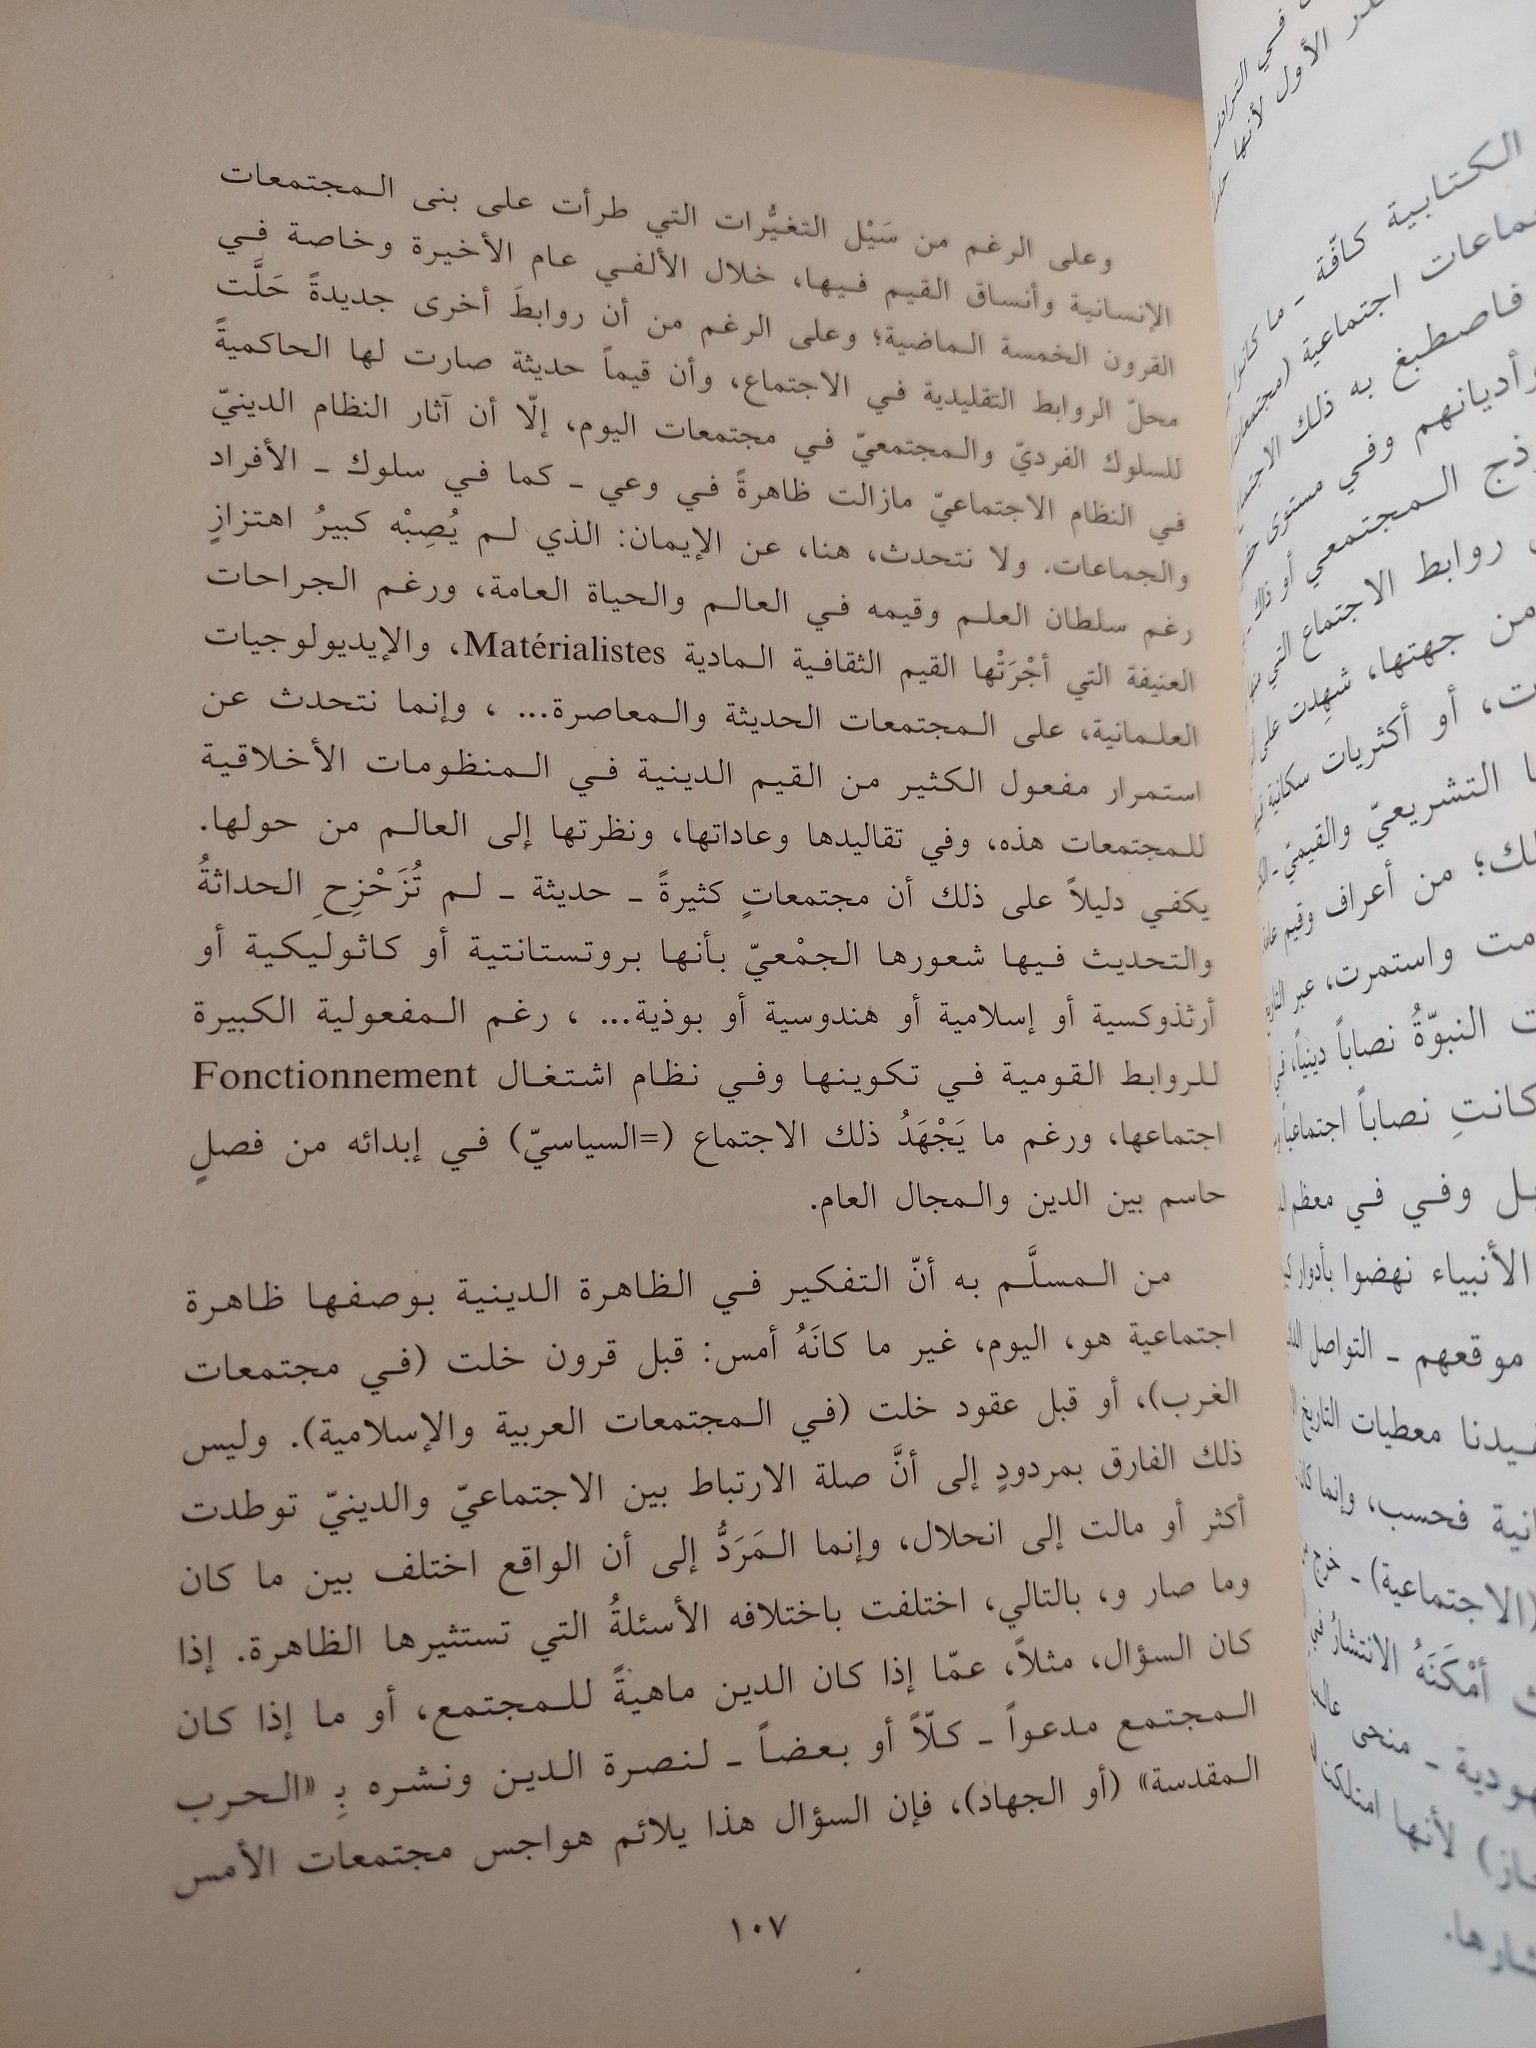 وعلى الرغم من سَيْل التغيُّرات التي طرأت على بنى المجتمعات
الإنسانية وأنساق القيم فيها، خلال الألفي عام الأخيرة وخاصة في
القرون الخمسة الماضية؛ وعلى الرغم من أن روابطَ أخرى جديدةً حَلَّت
محلّ الروابط التقليدية في الاجتماع، وأن قيماً حديثة صارت لها الحاكميةُ
للسلوك الفرديّ والمجتمعيّ في مجتمعات اليوم، إلّا أن آثار النظام الدينيّ
في النظام الاجتماعيّ مازالت ظاهرةً في وعي ـ كما في سلوك ـ الأفراد
والجماعات. ولا نتحدث، هنا، عن الإيمان: الذي لم يُصِبْه كبيرُ اهتزازٍ
رغم سلطان العلم وقيمه في العالم والحياة العامة، ورغم الجراحات
العنيفة التي أجْرَتْها القيم الثقافية المادية Matérialistes، والإيديولوجيات
العلمانية، على المجتمعات الحديثة والمعاصرة... ، وإنما نتحدث عن
استمرار مفعول الكثير من القيم الدينية في المنظومات الأخلاقية
للمجتمعات هذه، وفي تقاليدها وعاداتها، ونظرتها إلى العالم من حولها.
يكفي دليلاً على ذلك أن مجتمعاتٍ كثيرةً ـ حديثة ـ لم تُزَحْزِحِ الحداثةُ
والتحديث فيها شعورها الجمْعيّ بأنها بروتستانتية أو كاثوليكية أو
أرثذوكسية أو إسلامية أو هندوسية أو بوذية... ، رغم المفعولية الكبيرة
للروابط القومية في تكوينها وفي نظام اشتغال Fonctionnement
اجتماعها، ورغم ما يَجْهَدُ ذلك الاجتماع (=السياسيّ) في إبدائه من فصلٍ
حاسم بين الدين والمجال العام.
من المسلَّم به أنّ التفكير في الظاهرة الدينية بوصفها ظاهرة
اجتماعية هو، اليوم، غير ما كانَهُ أمس: قبل قرون خلت (في مجتمعات
الغرب)، أو قبل عقود خلت (في المجتمعات العربية والإسلامية). وليس
ذلك الفارق بمردودٍ إلى أنَّ صلة الارتباط بين الاجتماعيّ والدينيّ توطدت
أكثر أو مالت إلى انحلال، وإنما المَرَدُّ إلى أن الواقع اختلف بين ما كان
وما صار و، بالتالي، اختلفت باختلافه الأسئلةُ التي تستثيرها الظاهرة. إذا
كان السؤال، مثلاً، عمّا إذا كان الدين ماهيةً للمجتمع، أو ما إذا كان
المجتمع مدعواً ـ كلّاً أو بعضاً ـ لنصرة الدين ونشره بِـ «الحرب
المقدسة» (أو الجهاد)، فإن السؤال هذا يلائم هواجس مجتمعات الأمس
١٠٧
الأول لأنها
الكتابية كافّة ـ ما كانوا
اجتماعية
فاصطبغ به ذلك
وأديانهم وفي مستوى
المجتمعي أو ذاك
روابط الاجتماع التي
من جهتها، شهِدت على
أو أكثريات سكانية
التشريعيّ والقيميّ ـ
من أعراف وقيم
واستمرت، عبر
النبوّةُ نصاباً دينياً، في
كانتِ نصاباً اجتماعياً
وفي في معظم
الأنبياء نهضوا بأدوار
موقعهم ـ التواصل
معطيات التاريخ
فحسب، وإنما
(الاجتماعية) ـ خرج
أمْكَنَهُ الانتشارُ في
ـ منحى
لأنها امتلكت